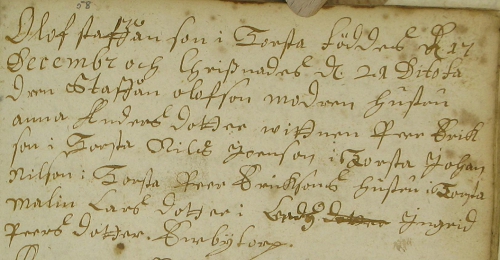 58
Olof staffan son i Torsta föddes d 17
Decembr och Christnades d 21 Dito fa
dren Staffan olofson modren hustru
anna Anders dotter witnen Peer Erik
son i Torsta Nils Jvenson i Torsta Johan
Nilson i Torsta Peer Eriksons hustru i Torsta
malin Lars dotter i Ingrid
Peers dotter.